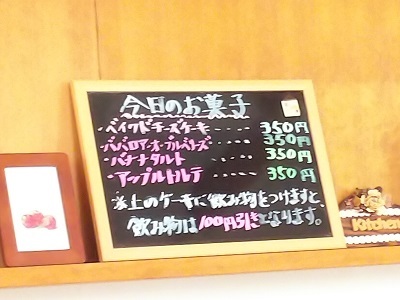 今日のお菓子
・ベイクドチーズケーキ・・・・・350円
・ババロア・オ・ブルベリーズ 350円
・バナナタルト・・・・・350円
・アップルトルテ・・・・・350円
以上のケーキに飲み物をつけますと、
飲み物は100円引きとなります。
Kitchen